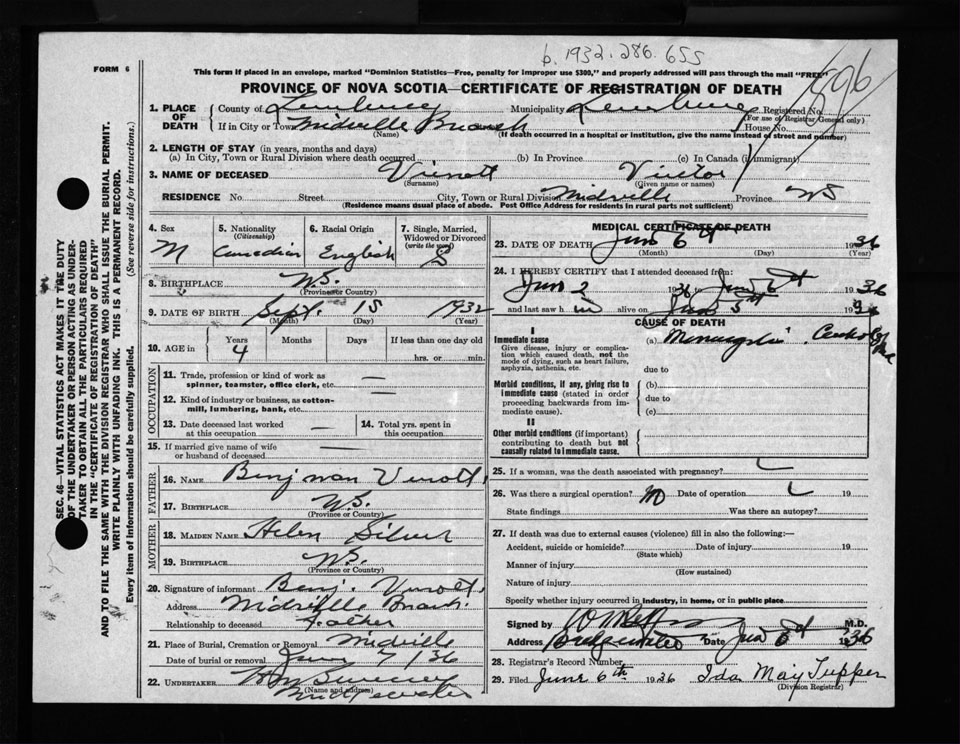 b. 1932. 286. 655
FORM 6
This form if placed in an envelope, marked "Dominion Statistics—Free, penalty for improper use $300," and properly addressed will pass through the mail "FREE"
PROVINCE OF NOVA SCOTIA—CERTIFICATE OF REGISTRATION OF DEATH
1. PLACE OF DEATH County of Lunenburg Municipality Lunenburg Registered No.
(For use of Registrar General only)
If in City or Town Midville Branch House No.
(Name) (If death occurred in a hospital or institution, give the name instead of street and number)
2. LENGTH OF STAY (in years, months and days)
(a) In City, Town or Rural Division where death occurred (b) In Province (c) In Canada (if immigrant)
3. NAME OF DECEASED Vienott Victor
(Surname) (Given name or names)
RESIDENCE No. Street City, Town or Rural Division Midville Province NS
(Residence means usual place of abode. Post Office Address for residents in rural parts not sufficient)
4. Sex M
5. Nationality (Citizenship) Canadian
6. Racial Origin English
7. Single, Married, Widowed or Divorced (write the word) S
8. BIRTHPLACE N.S.
(Province or Country)
9. DATE OF BIRTH Sept. 15 1932
(Month) (Day) (Year)
10. AGE in Years Months Days If less than one day old
4 hrs. or min.
OCCUPATION
11. Trade, profession or kind of work as spinner, teamster, office clerk, etc. —
12. Kind of industry or business, as cotton-mill, lumbering, bank, etc. —
13. Date deceased last worked at this occupation —
14. Total yrs. spent in this occupation
15. If married give name of wife or husband of deceased —
FATHER
16. NAME Benjman Vienott
17. BIRTHPLACE N.S.
(Province or Country)
MOTHER
18. MAIDEN NAME Helen Silver
19. BIRTHPLACE N.S.
(Province or Country)
20. Signature of informant Benj. Vienott
Address Midville Branch
Relationship to deceased Father
21. Place of Burial, Cremation or Removal Midville
Date of burial or removal June 7/36
22. UNDERTAKER
(Name and address)
Bridgewater
MEDICAL CERTIFICATE OF DEATH
23. DATE OF DEATH June 6th 1936
(Month) (Day) (Year)
24. I HEREBY CERTIFY that I attended deceased from:
June 2 1936 to June 6th 1936
and last saw him alive on June 5th 1936
CAUSE OF DEATH
I
Immediate cause
Give disease, injury or complication which caused death, not the mode of dying, such as heart failure, asphyxia, asthenia, etc.
(a) Meningitis
due to
Morbid conditions, if any, giving rise to immediate cause (stated in order proceeding backwards from immediate cause).
(b)
due to
(c)
II
Other morbid conditions (if important) contributing to death but not causally related to immediate cause.
25. If a woman, was the death associated with pregnancy?
26. Was there a surgical operation? No Date of operation 19
State findings Was there an autopsy?
27. If death was due to external causes (violence) fill in also the following:—
Accident, suicide or homicide? Date of injury 19
(State which)
Manner of injury
(How sustained)
Nature of injury
Specify whether injury occurred in industry, in home, or in public place
Signed by M.D.
Address Bridgewater Date June 6th 1936
28. Registrar's Record Number
29. Filed June 6th 1936 Ida May Tupper
(Division Registrar)
SEC. 46—VITAL STATISTICS ACT MAKES IT THE DUTY
OF THE UNDERTAKER OR PERSON ACTING AS UNDERTAKER TO OBTAIN ALL THE PARTICULARS REQUIRED
IN THE "CERTIFICATE OF REGISTRATION OF DEATH"
AND TO FILE THE SAME WITH THE DIVISION REGISTRAR WHO SHALL ISSUE THE BURIAL PERMIT.
WRITE PLAINLY WITH UNFADING INK. THIS IS A PERMANENT RECORD.
Every item of information should be carefully supplied. (See reverse side for instructions.)